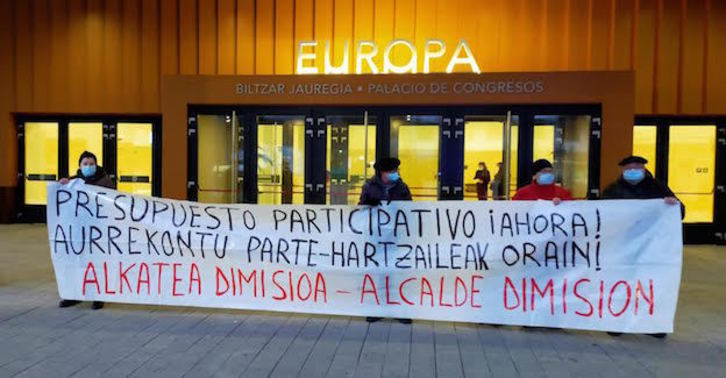 EUROPA
BILTZAR JAUREGIA • PALACIO DE CONGRESOS
PRESUPUESTO PARTICIPATIVO ¡AHORA!
AURREKONTU PARTE-HARTZAILEAK ORAIN!
ALKATEA DIMISIOA - ALCALDE DIMISION